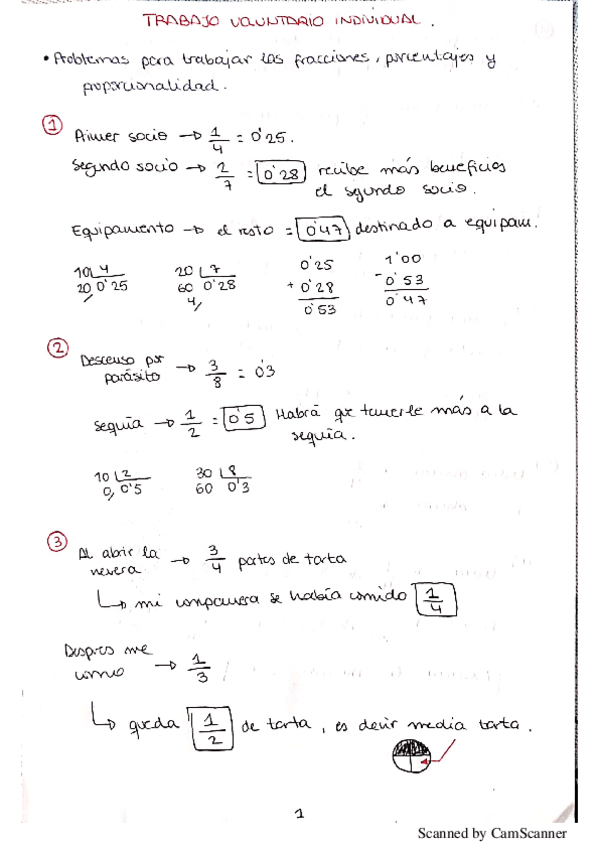 TRABAJO VOLUNTARIO INDIVIDUAL.
• Problemas para trabajar las fracciones, porcentajes y
proporcionalidad.
1 Primer socio → 1/4 = 0'25.
Segundo socio → 2/7 = 0'28 recibe más beneficios
el segundo socio.
Equipamento → el resto = 0'47 destinado a equipam.
10 4 20 7 0'25 1'00
20 0'25 60 0'28 + 0'28 - 0'53
4 0'53 0'47
2 Descenso por
parásito → 3/8 = 0'3
Sequía → 1/2 = 0'5 Habrá que temerle más a la
sequía.
10 2 30 8
0 0'5 60 0'3
3 Al abrir la
nevera → 3/4 partes de tarta
↳ mi compañera se había comido 1/4
Después me
como → 1/3
↳ queda 1/2 de tarta, es decir media tarta.
1
Scanned by CamScanner